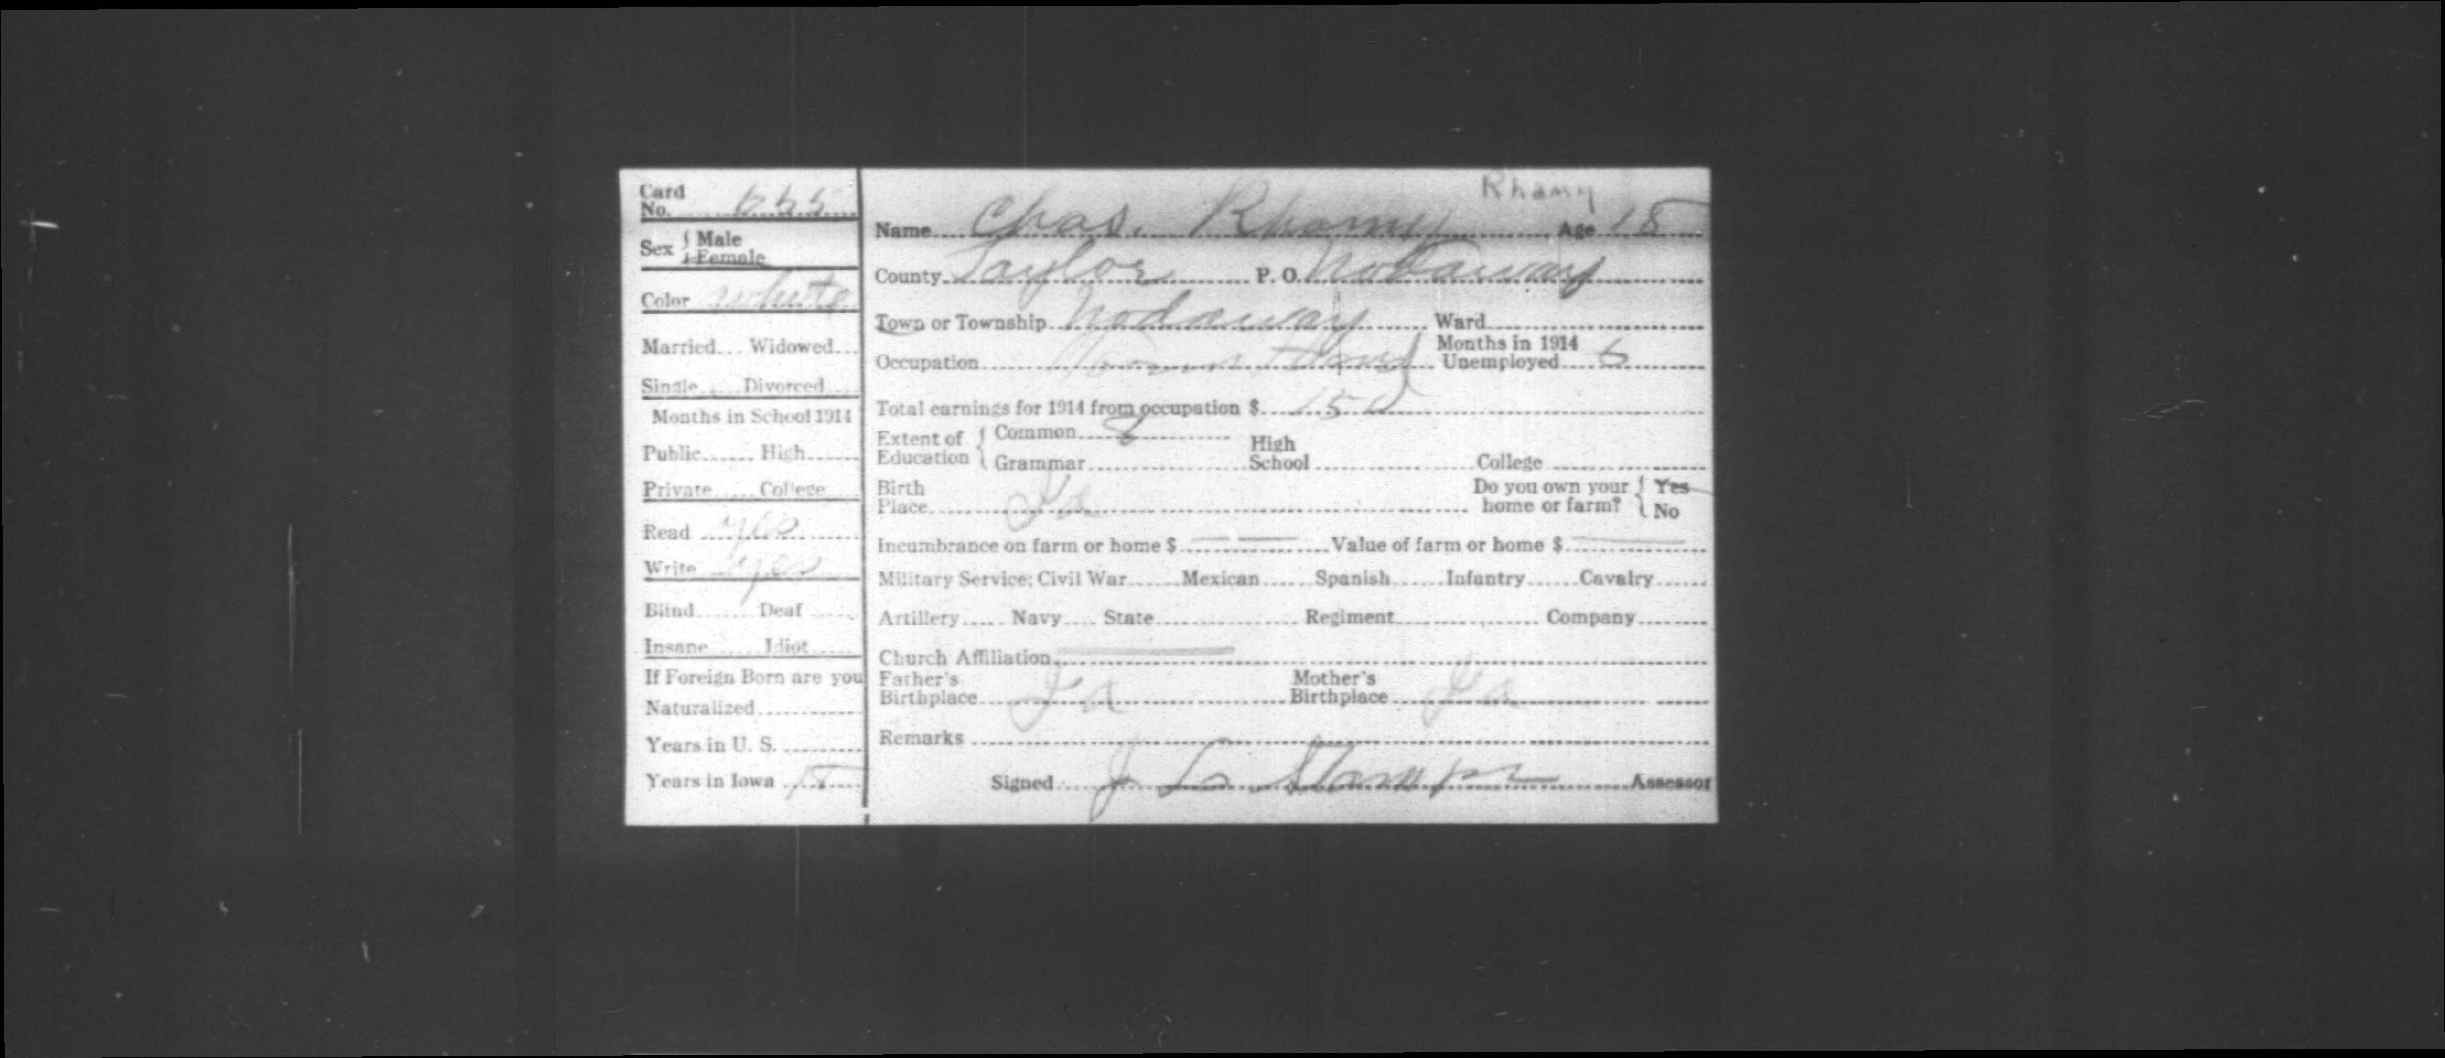 Card
No. 555
Sex { Male
Female
Color white
Married Widowed
Single Divorced
Months in School 1914
Public High
Private College
Read yes
Write yes
Blind Deaf
Insane Idiot
If Foreign Born are you
Naturalized
Years in U. S.
Years in Iowa 18
Rhamy
Name Chas. Rhamy Age 18
County Taylor P. O. Nodaway
Town or Township Nodaway Ward
Occupation Months in 1914 Unemployed 5
Total earnings for 1914 from occupation $ 150
Extent of Education { Common 8
Grammar High School College
Birth Place Ia Do you own your home or farm? { Yes
No
Incumbrance on farm or home $ Value of farm or home $
Military Service: Civil War Mexican Spanish Infantry Cavalry
Artillery Navy State Regiment Company
Church Affiliation
Father's Birthplace Ia Mother's Birthplace Ia
Remarks
Signed J L Assessor